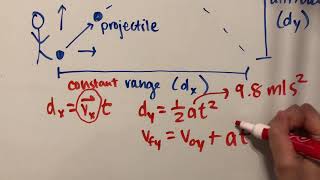 projectile
(dy)
constant range (dx)
9.8 m/s²
dx = vx t
dy = ½at²
vfy = voy + at